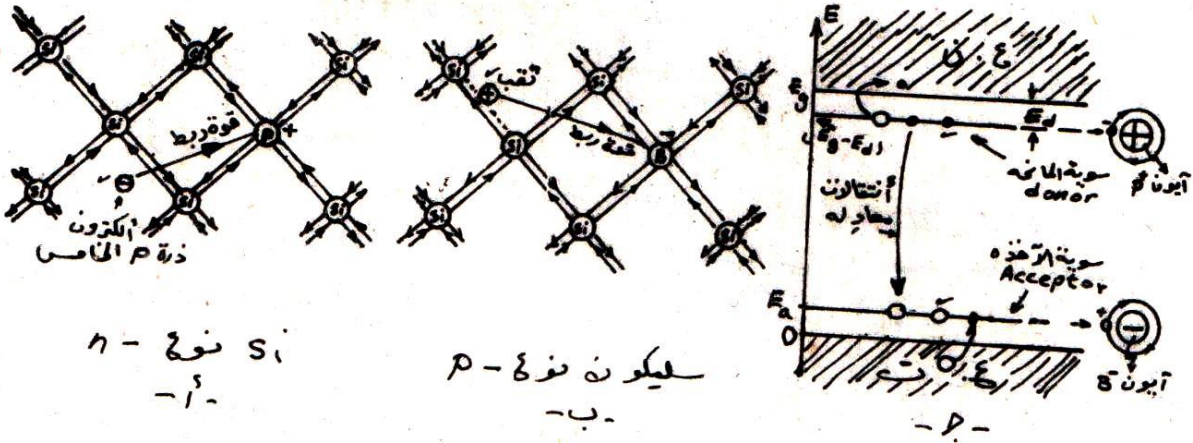 Si
Si
Si
Si
P+
Si
Si
Si
قوة ربط
e⁻
ألكترون
ذرة P الخامس
Si نوع - n
-أ-
Si
Si
Si
ثقب
Si
B⁻
قوة ربط
Si
Si
Si
سليكون نوع - P
-ب-
E
ع.ن
Eg
Ed
(Eg-Ed)
سوية المانحه
donor
آيون P⁺
أنتقالات
معادله
سوية الآخذه
Acceptor
Ea
0
ع.ت
آيون B⁻
-ج-